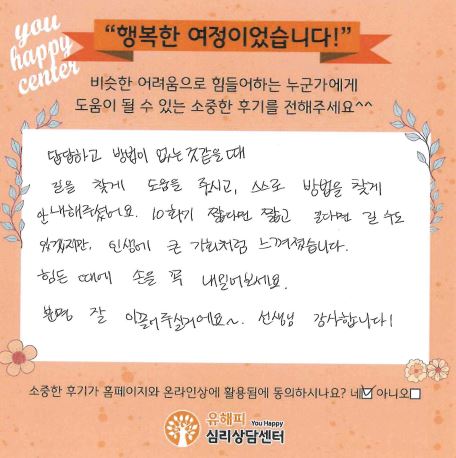 you
happy
center
“행복한 여정이었습니다!”
비슷한 어려움으로 힘들어하는 누군가에게
도움이 될 수 있는 소중한 후기를 전해주세요^^
답답하고 방법이 없는것같을때
길을 찾게 도움을 주시고, 스스로 방법을 찾게
안내해주셨어요. 10회기 짧다면 짧고 길다면 길 수도
있겠지만, 인생에 큰 기회처럼 느껴졌습니다.
힘든 때에 손을 꼭 내밀어보세요.
분명 잘 이끌어주실거에요~. 선생님 감사합니다!
소중한 후기가 홈페이지와 온라인상에 활용됨에 동의하시나요? 네☑ 아니오☐
유해피 You Happy
심리상담센터